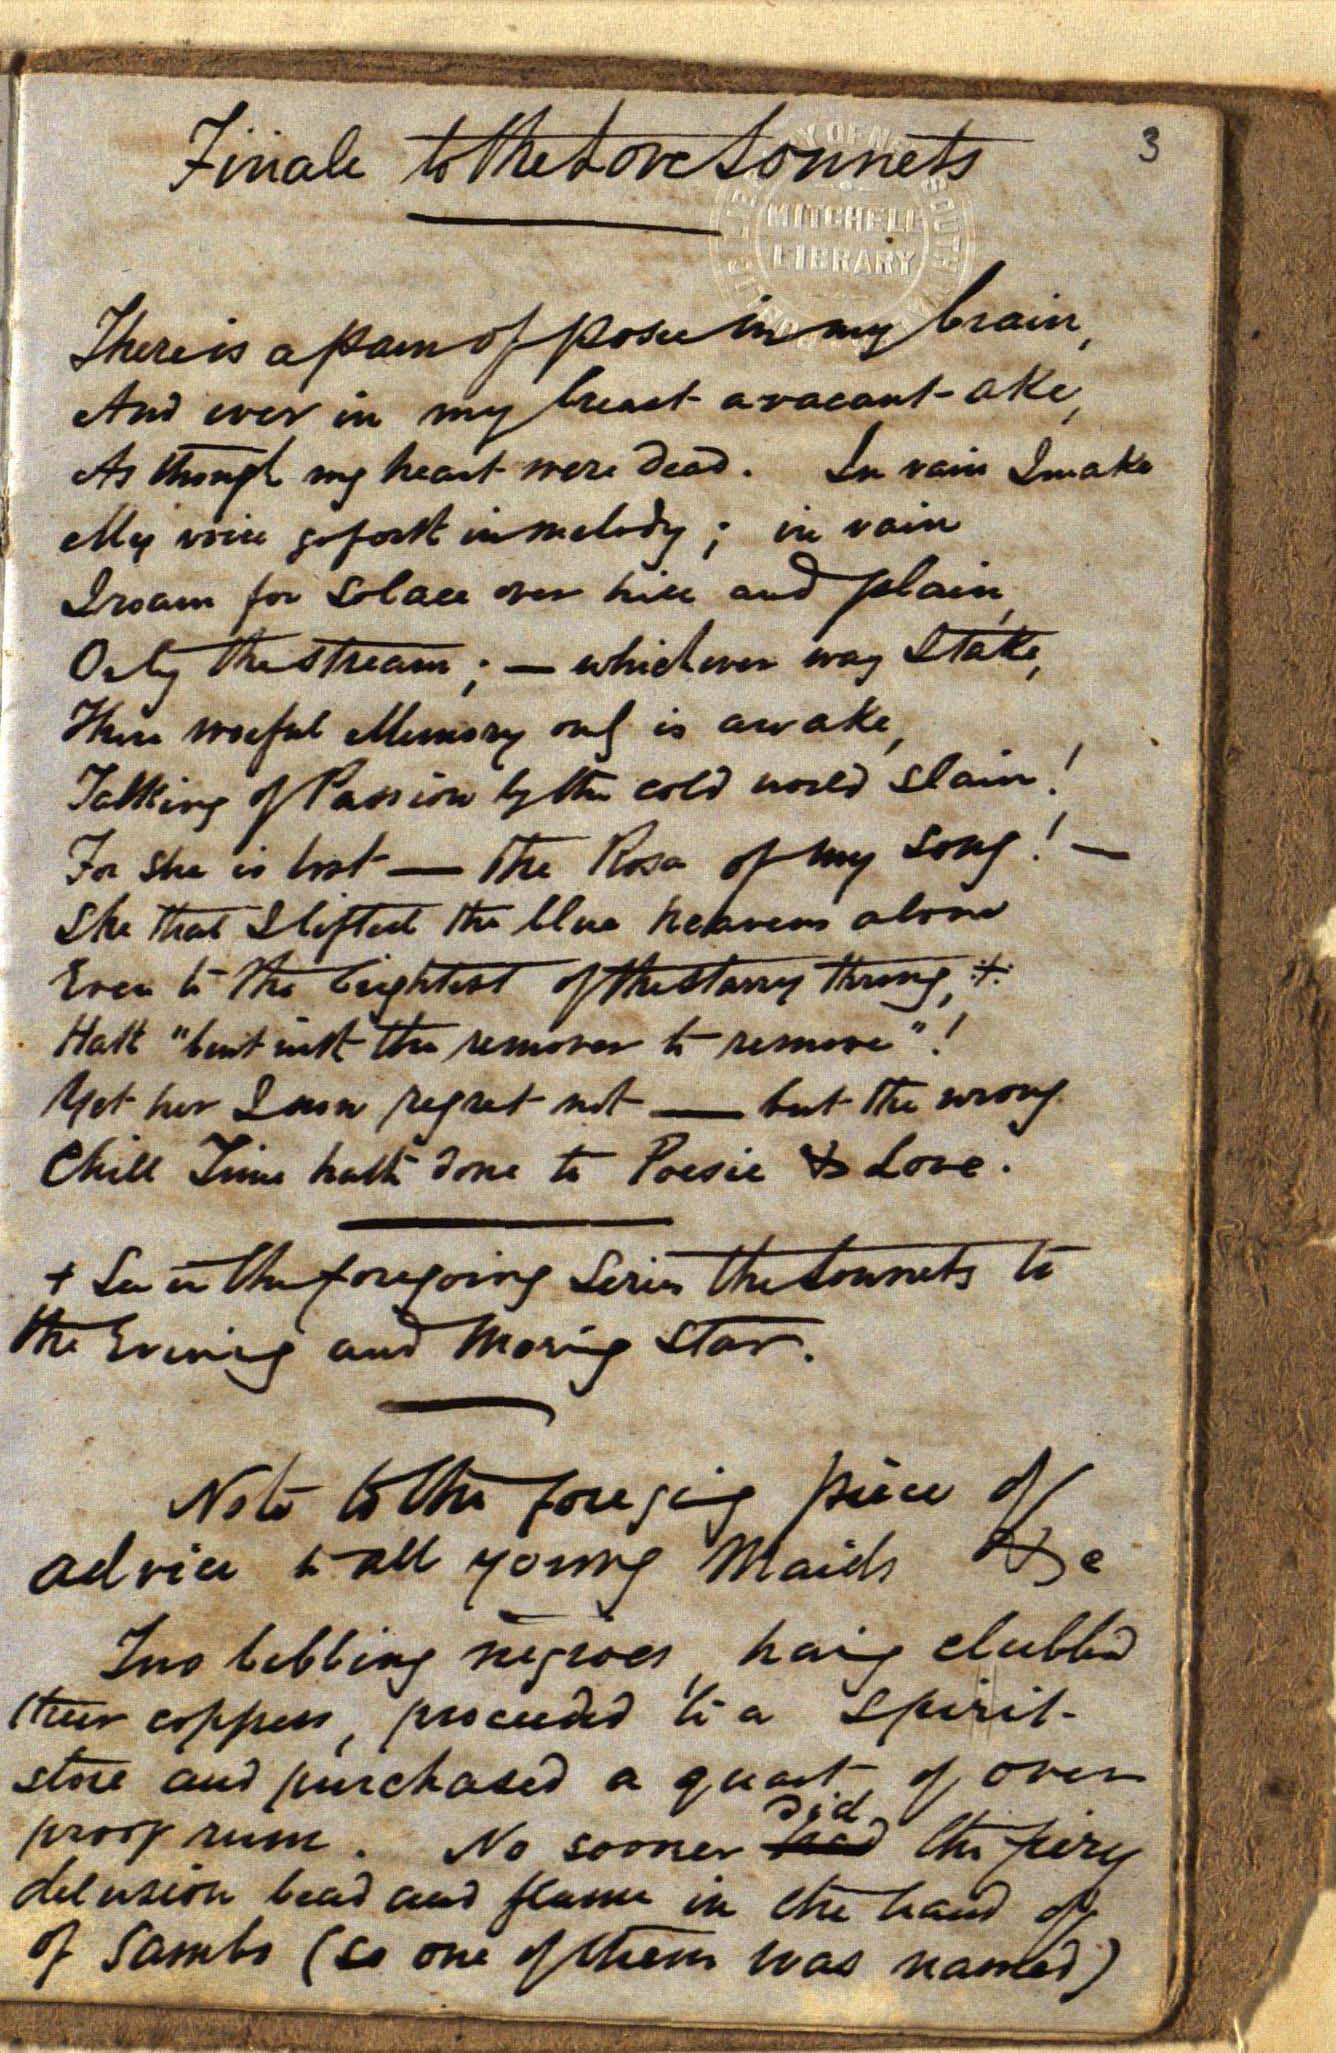 Finale to the Love Sonnets
3
MITCHELL
LIBRARY
There is a pain of posee in my brain,
And ever in my breast a vacant ake,
As though my heart were dead. In vain I make
My voice go forth in melody; in vain
I roam for solace over hill and plain,
O'er by the stream; — whichever way I take,
There woeful Memory only is awake,
Talking of Passion by the cold world slain!
For she is lost — the Rosa of my song! —
She that I lifted the blue heavens above
Even to the brightest of the starry throng, +
Hath "bent with the remover to remove"!
Yet her I now regret not — but the wrong
Chill Time hath done to Poesie & Love.
+ See in the foregoing Series the Sonnets to
the Evening and Morning Star.
Note to the foregoing piece of
advice to all young Maids &c
Two bibbing negroes, having clubbed
their coppers, proceeded to a spirit-
store and purchased a quart of over
proof rum. No sooner had did the fiery
delusion bead and flame in the hand of
of Sambo (so one of them was named)